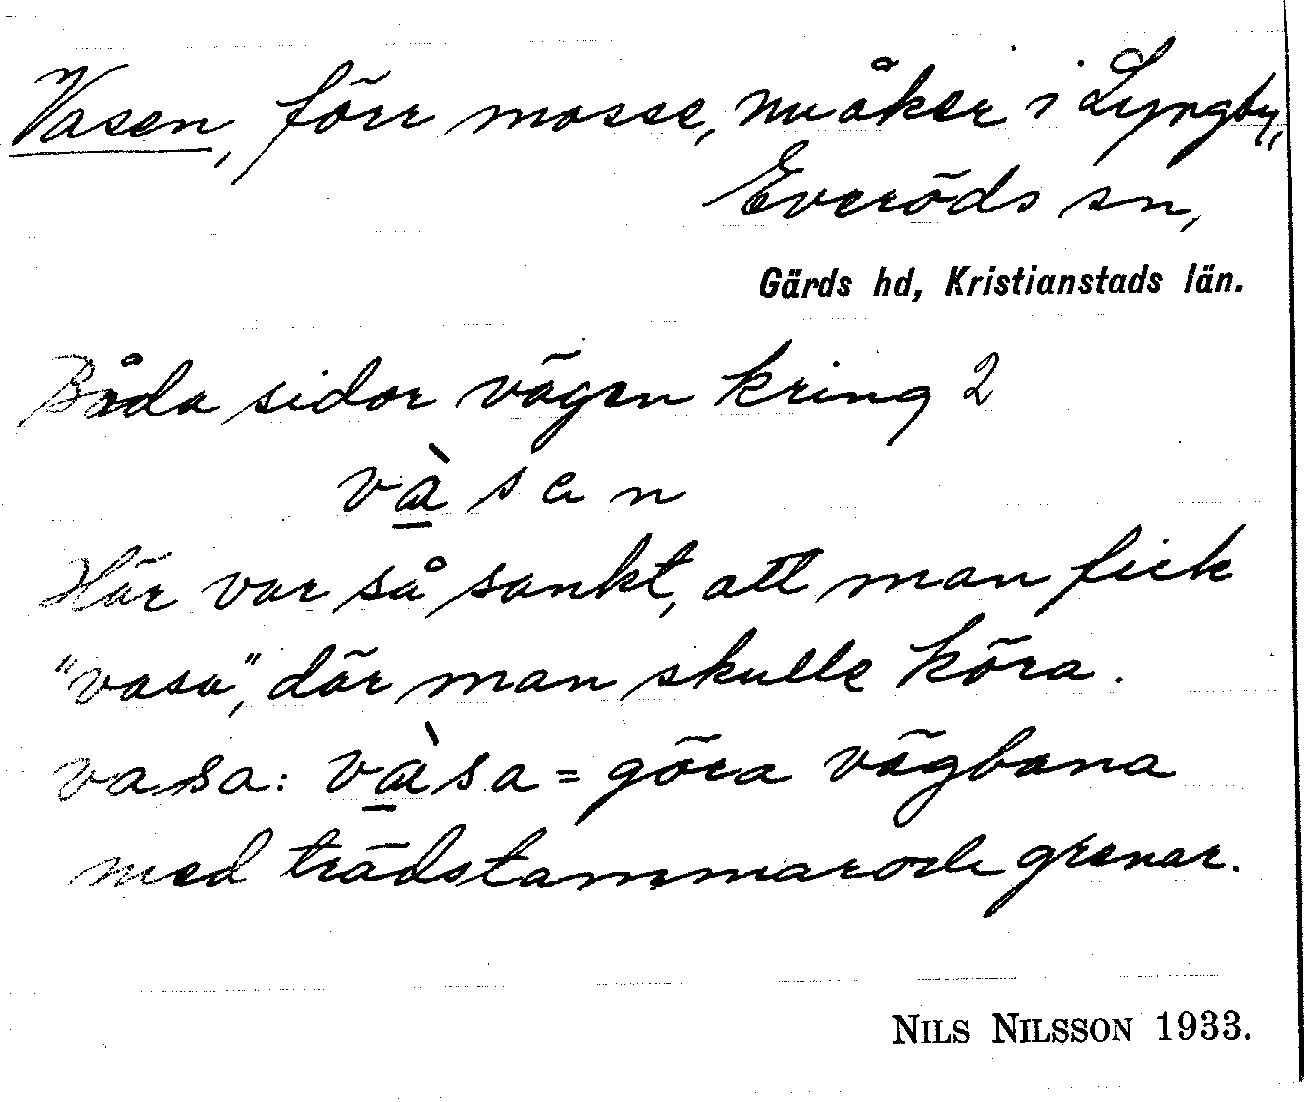 Vasen, förr mosse, nu åker i Lyngby,
Everöds sn,
Gärds hd, Kristianstads län.
Båda sidor vägen kring 2
và̱sen
Här var så sankt, att man fick
"vasa", där man skulle köra.
vasa: và̱sa = göra vägbana
med trädstammar och grenar.
NILS NILSSON 1933.